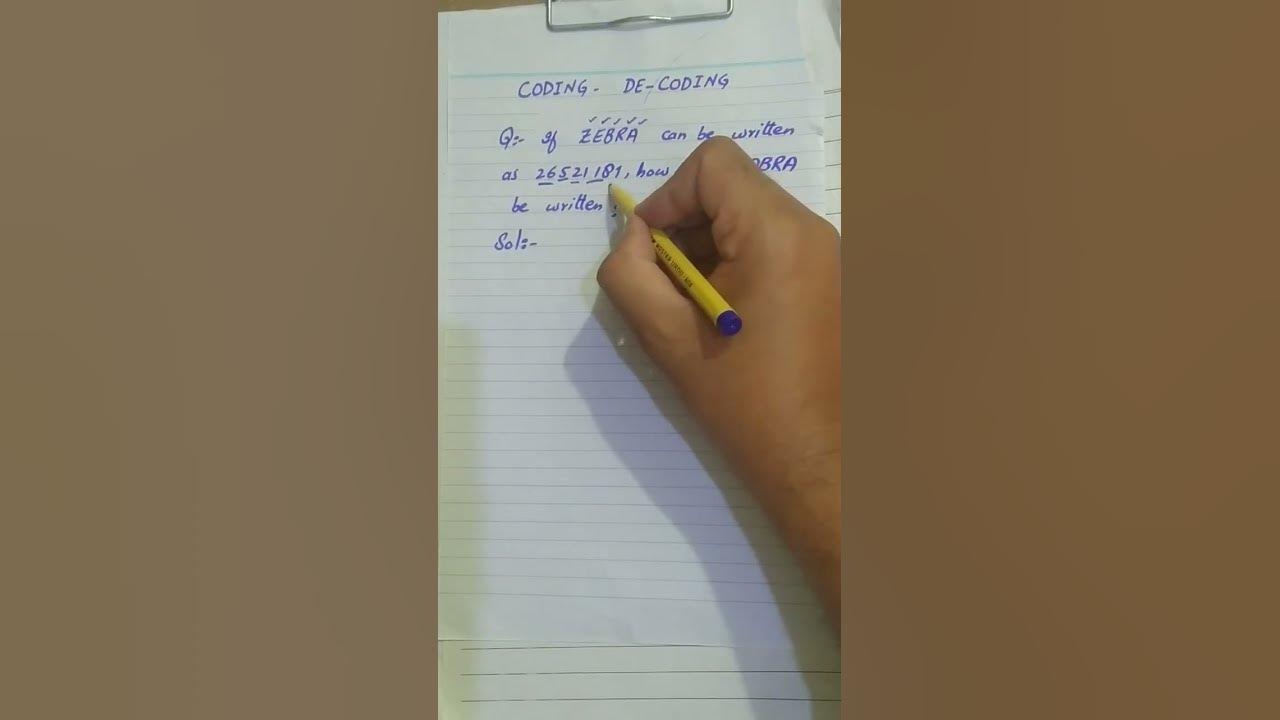 CODING - DE-CODING
Q:- If ZEBRA can be written
as 26521181, how
be written
Sol:-